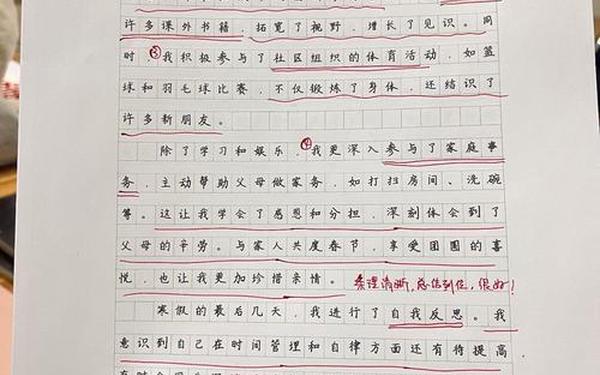 许多课外书籍，拓宽了视野，增长了见识。同
时，③我积极参与了社区组织的体育活动，如篮
球和羽毛球比赛，不仅锻炼了身体，还结识了
许多新朋友。
除了学习和娱乐，④我更深入参与了家庭事
务，主动帮助父母做家务，如打扫房间、洗碗
等。这让我学会了感恩和分担，深刻体会到了
父母的辛劳。与家人共度春节，享受团圆的喜
悦，也让我更加珍惜亲情。
条理清晰，总结到位，很好！
寒假的最后几天，我进行了自我反思。我
意识到自己在时间管理和自律方面还有待提高